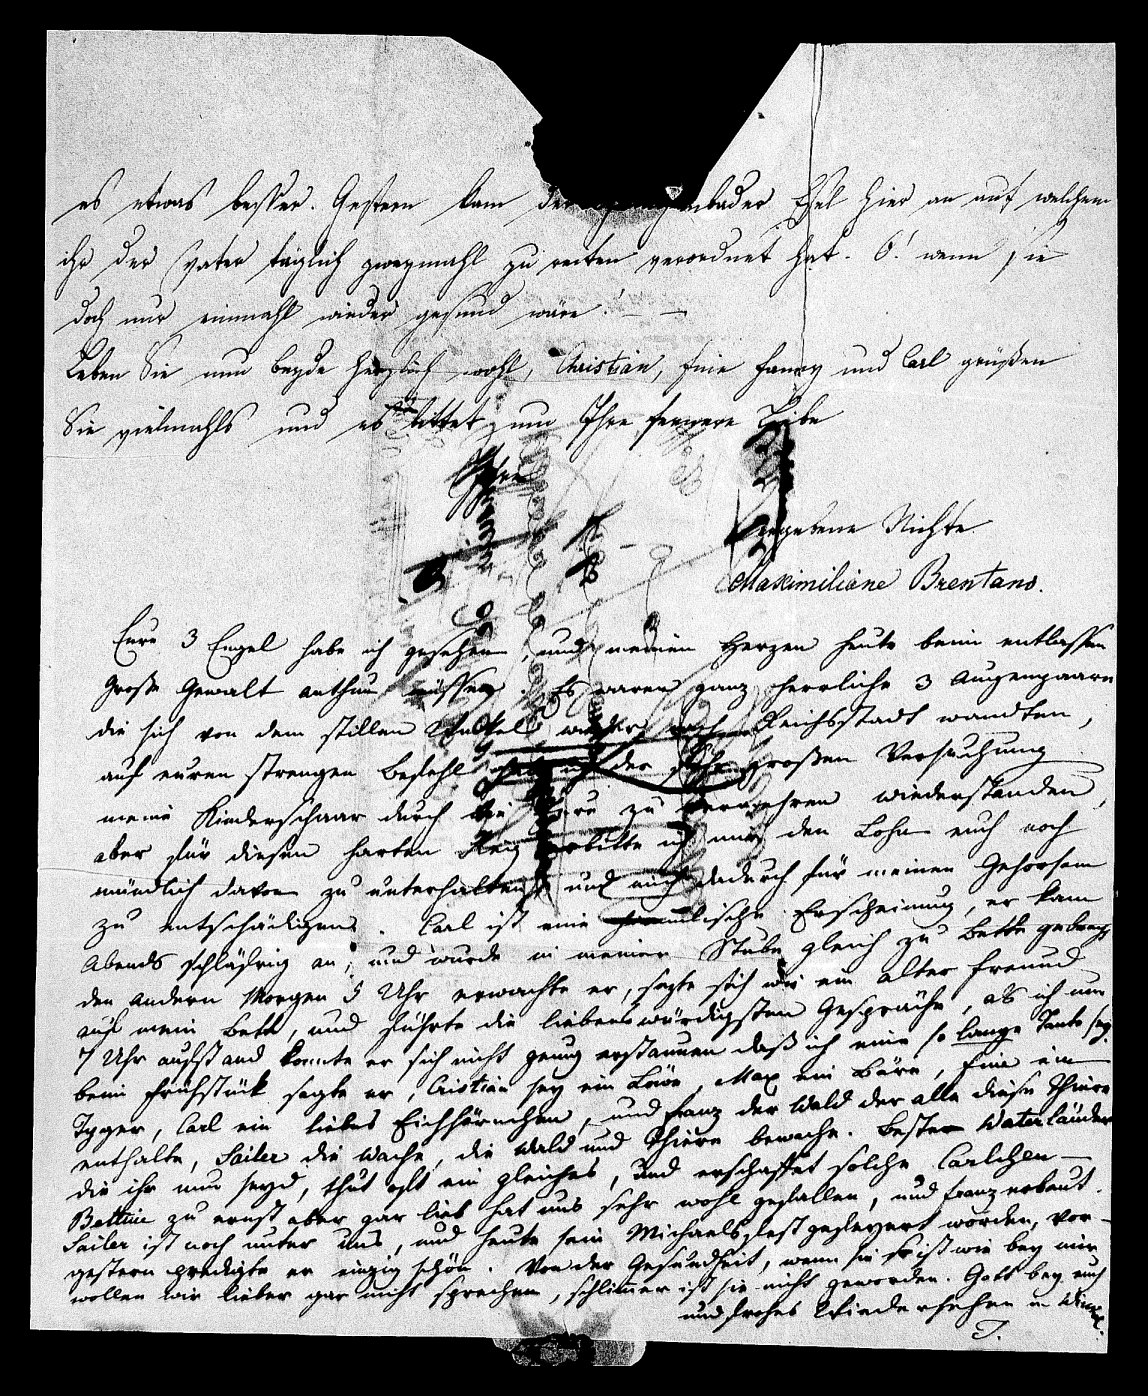 es etwas besser. Gestern kam der bader Esel hier an auf welchem
ihr der Vater täglich zweymahl zu reiten verordnet hat. O! wenn sie
doch nur einmahl wieder gesund wäre! — —
Leben Sie nun beyde herzlich wohl, Christian, Fine Fanny und Carl grüßen
Sie vielmahls und es bittet um Ihre fernere Liebe
Ihre
ergebene Nichte
Maximiliane Brentano.
Eure 3 Engel habe ich gesehen, und meinem Herzen heute beim entlassen
große Gewalt anthun müssen. Es waren ganz herrliche 3 Augenpaare
die sich von dem stillen Winkel wieder nach Reichsstadt wandten,
auf euren strengen Befehl der sehr großen Versuchung
meine Kinderschaar durch zu vermehren wiederstanden,
aber für diesen harten erbitte ich mir den Lohn euch noch
mündlich davon zu unterhalten, und mich dadurch für meinen Gehorsam
zu entschädigen. Carl ist eine himmlische Erscheinung, er kam
Abends schläfrig an, und wurde in meiner Stube gleich zu Bette gebracht
den andern Morgen 5 Uhr erwachte er, setzte sich wie ein alter Freund
auf mein Bett, und führte die liebenswürdigsten Gespräche, als ich um
7 Uhr aufstand konnte er sich nicht genug erstaunen daß ich eine so lange Tante sey.
beim Frühstück sagte er, Cristian sey ein Löwe, Max ein Bäre, Fine ein
Tyger, Carl ein liebes Eichhörnchen, und Franz der Wald der alle diese Thiere
enthalte, Sailer die Wache, die Wald und Thiere bewache. Bester Vaterländer
die ihr nun seyd, thut oft ein gleiches, und erschaffet solche Carlchen —
Bettine zu ernst aber gar lieb hat uns sehr wohl gefallen, und Franz erbaut.
Sailer ist noch unter uns, und heute sein Michaelsfest gefeyert worden, vor-
gestern predigte er einzig schön. Von der Gesundheit, wenn sie so ist wie bey mir
wollen wir lieber gar nicht sprechen, schlimmer ist sie nicht geworden. Gott bey euch
und frohes Wiedersehen in Winkel.
T.